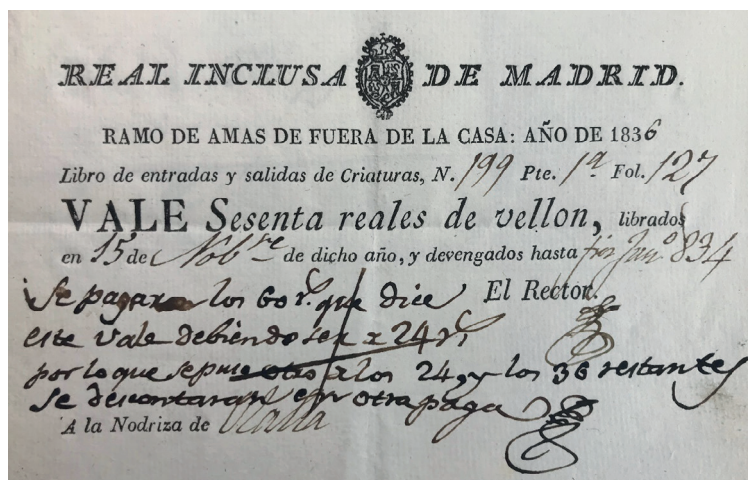 REAL INCLUSA DE MADRID.
RAMO DE AMAS DE FUERA DE LA CASA: AÑO DE 1836
Libro de entradas y salidas de Criaturas, N. 199 Pte. 1ª Fol. 127
VALE Sesenta reales de vellon, librados
en 15 de Nobre de dicho año, y devengados hasta fin Juno 834
Se pagaran los 60 rs. que dice El Rector.
este vale debiendo ser 24 rs
por lo que se puse otro los 24, y los 36 restantes
se descontaran en otra paga
A la Nodriza de